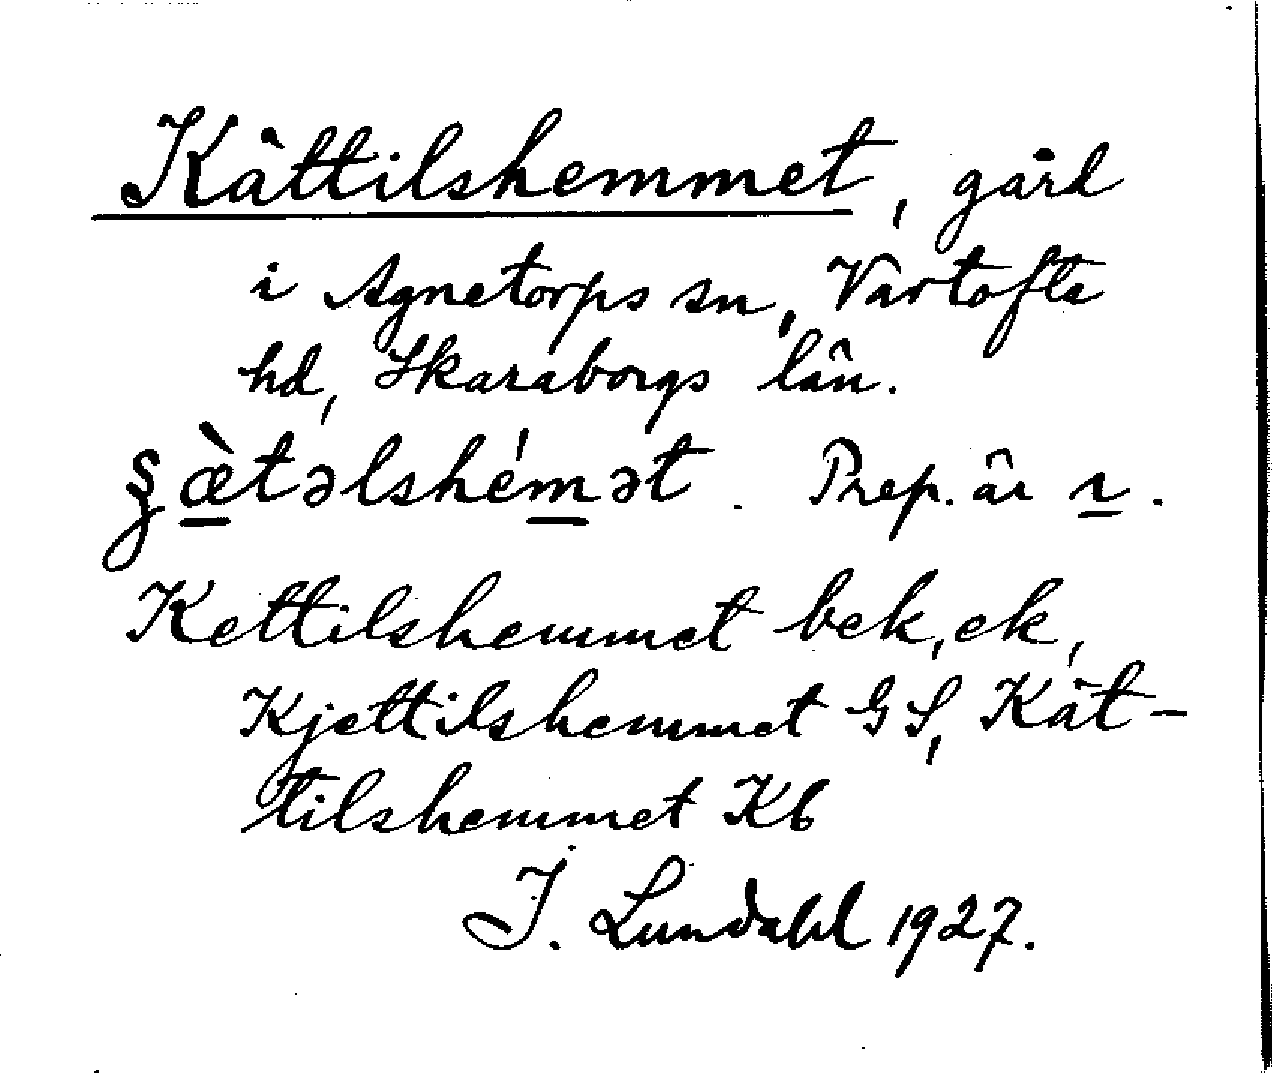 Kättilshemmet, gård
i Agnetorps sn, Vartofta
hd, Skaraborgs län.
ꞩæ̀təlshémət. Prep. är ı.
Kettilshemmet bek, ek,
Kjettilshemmet GS, Kät-
tilshemmet Kb
J. Lundahl 1927.